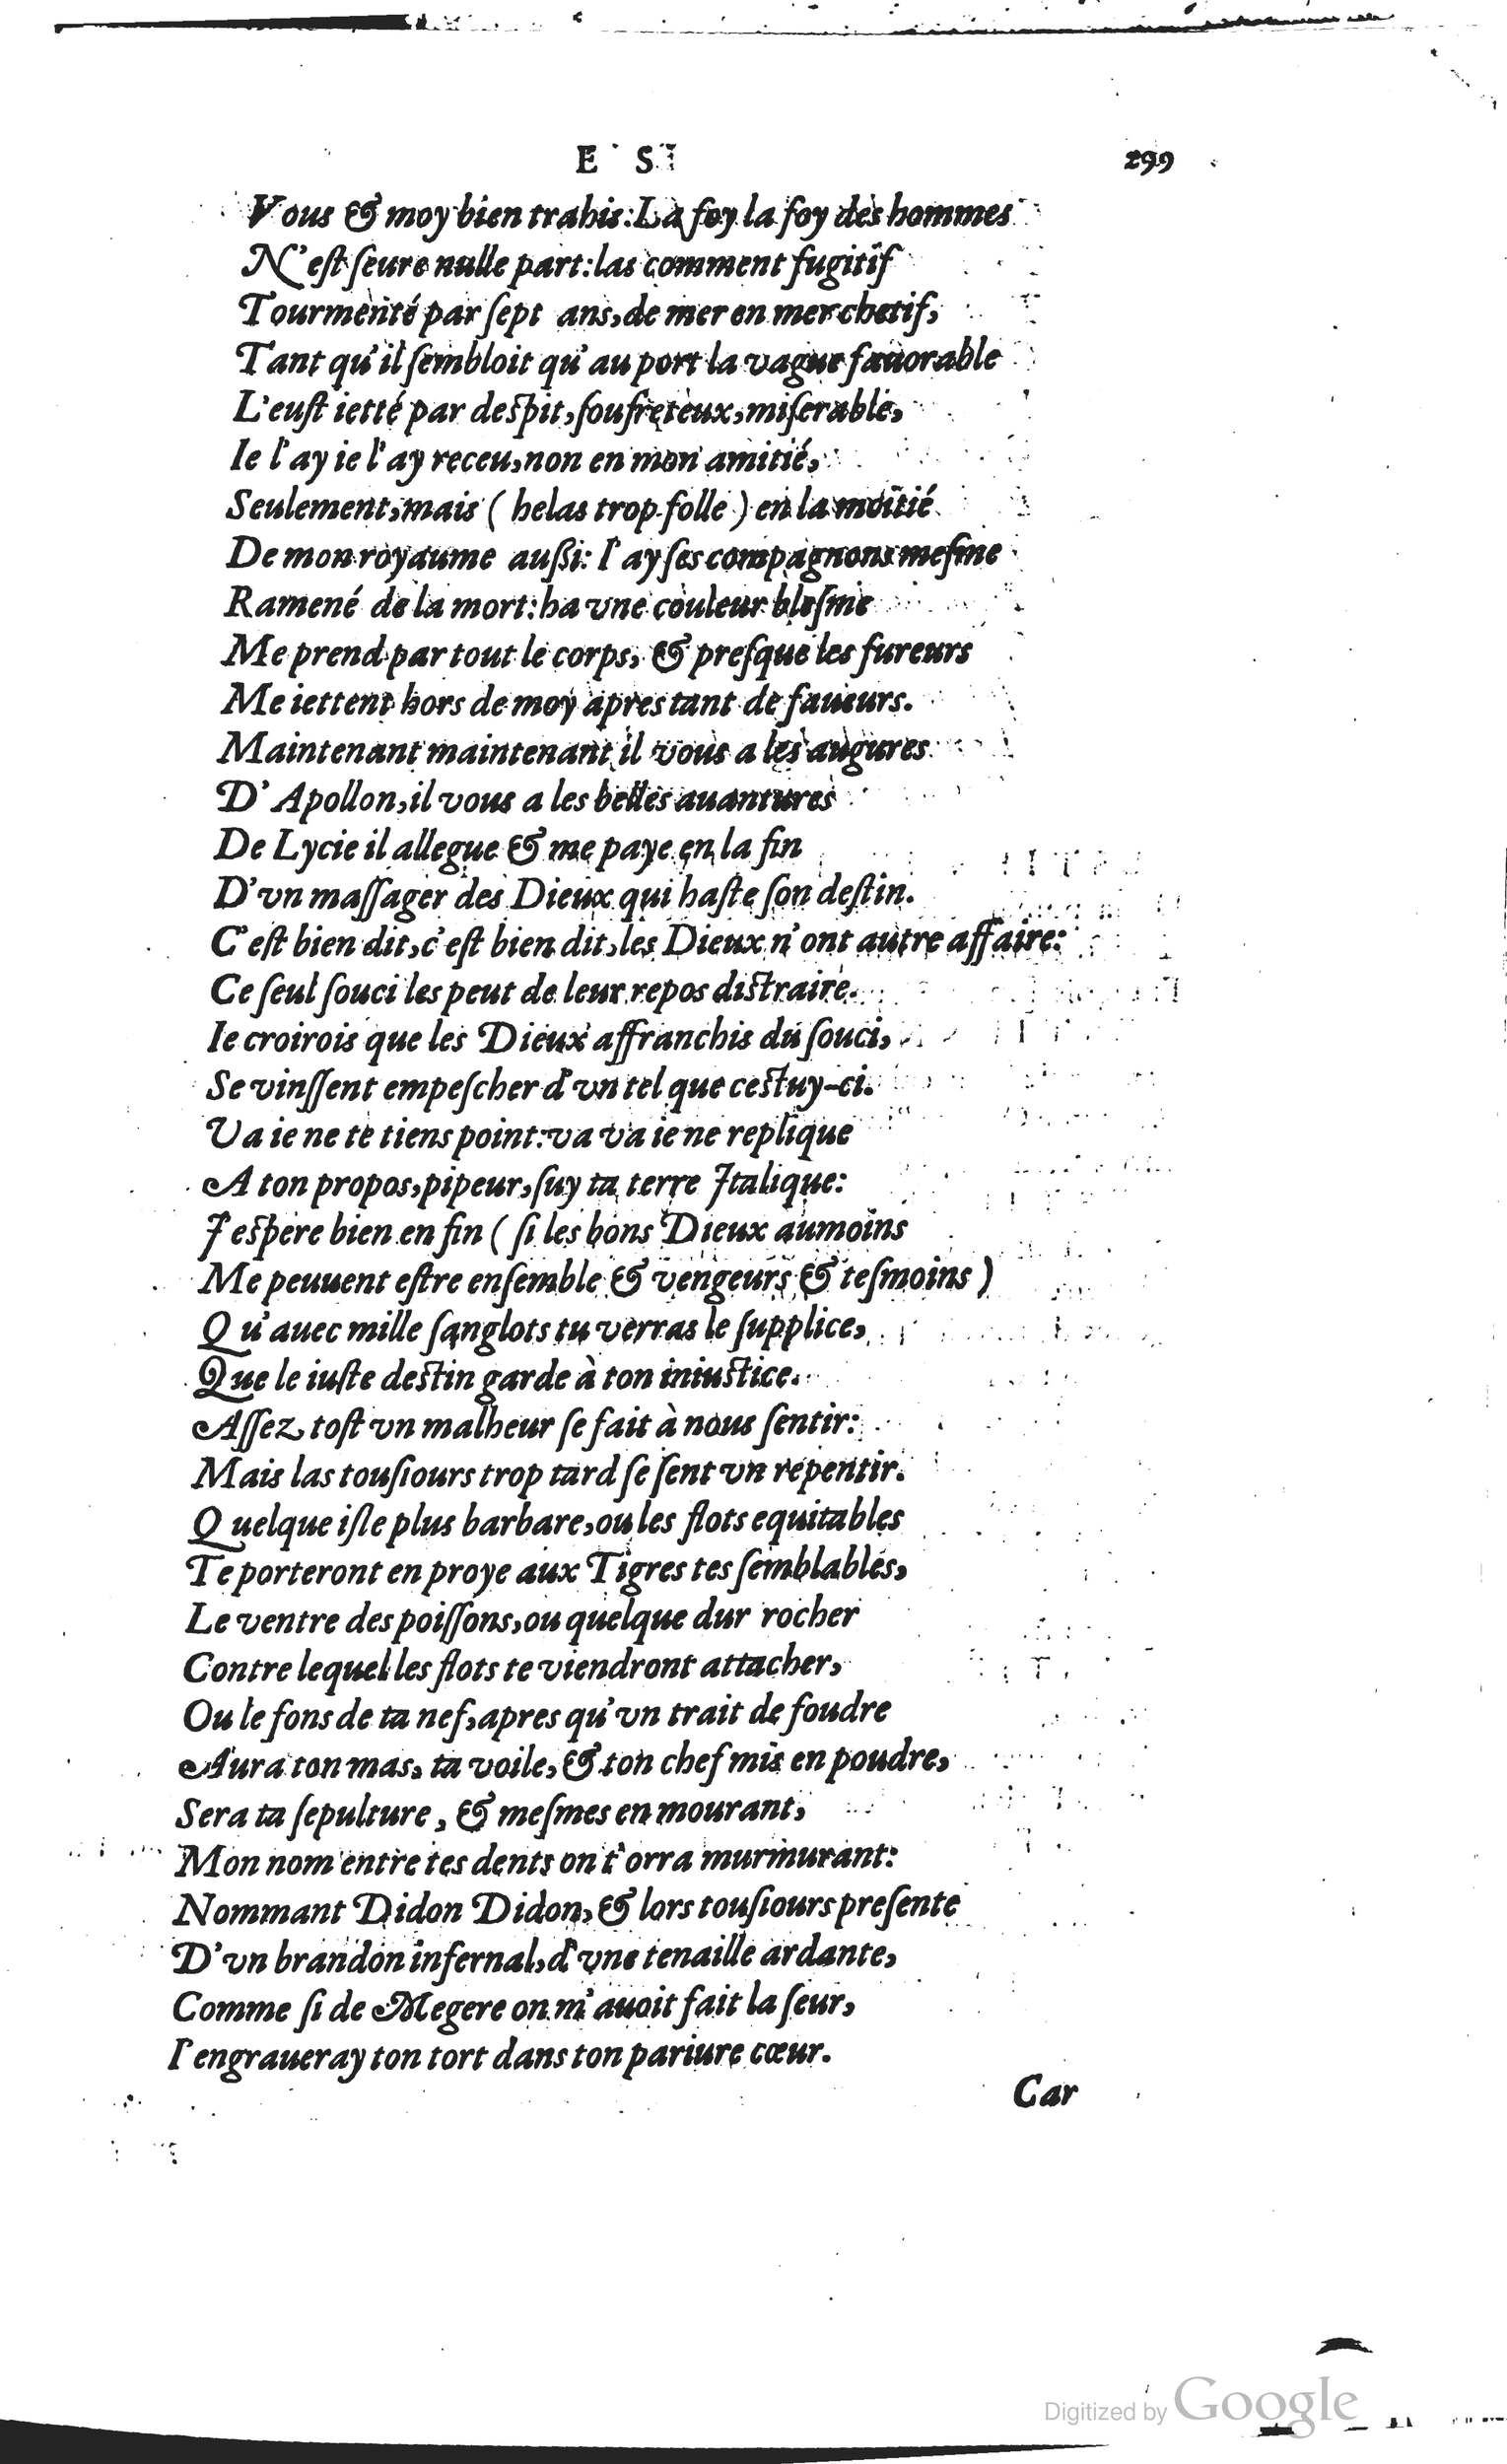 E S 299
Vous & moy bien trahis: La foy la foy des hommes
N'eſt ſeure nulle part: las comment fugitif
Tourmenté par ſept ans, de mer en mer chetif,
Tant qu'il ſembloit qu'au port la vague fauorable
L'euſt ietté par deſpit, ſoufreteux, miſerable,
Ie l'ay ie l'ay receu, non en mon amitié,
Seulement, mais ( helas trop folle ) en la moitié
De mon royaume außi: I'ay ſes compagnons meſme
Ramené de la mort: ha vne couleur bleſme
Me prend par tout le corps, & preſque les fureurs
Me iettent hors de moy apres tant de faueurs.
Maintenant maintenant il vous a les augures
D'Apollon, il vous a les belles auantures
De Lycie il allegue & me paye en la fin
D'vn maſſager des Dieux qui haſte ſon deſtin.
C'eſt bien dit, c'eſt bien dit, les Dieux n'ont autre affaire:
Ce ſeul ſouci les peut de leur repos diſtraire.
Ie croirois que les Dieux affranchis du ſouci,
Se vinſſent empeſcher d'vn tel que ceſtuy-ci.
Va ie ne te tiens point: va va ie ne replique
A ton propos, pipeur, ſuy ta terre Italique:
I'eſpere bien en fin ( ſi les bons Dieux aumoins
Me peuuent eſtre enſemble & vengeurs & teſmoins )
Qu'auec mille ſanglots tu verras le ſupplice,
Que le iuſte deſtin garde à ton iniuſtice.
Aſſez toſt vn malheur ſe fait à nous ſentir:
Mais las touſiours trop tard ſe ſent vn repentir.
Quelque iſle plus barbare, ou les flots equitables
Te porteront en proye aux Tigres tes ſemblables,
Le ventre des poiſſons, ou quelque dur rocher
Contre lequel les flots te viendront attacher,
Ou le fons de ta nef, apres qu'vn trait de foudre
Aura ton mas, ta voile, & ton chef mis en poudre,
Sera ta ſepulture, & meſmes en mourant,
Mon nom entre tes dents on t'orra murmurant:
Nommant Didon Didon, & lors touſiours preſente
D'vn brandon infernal, d'vne tenaille ardante,
Comme ſi de Megere on m'auoit fait la ſeur,
I'engraueray ton tort dans ton pariure cœur.
Car
Digitized by Google